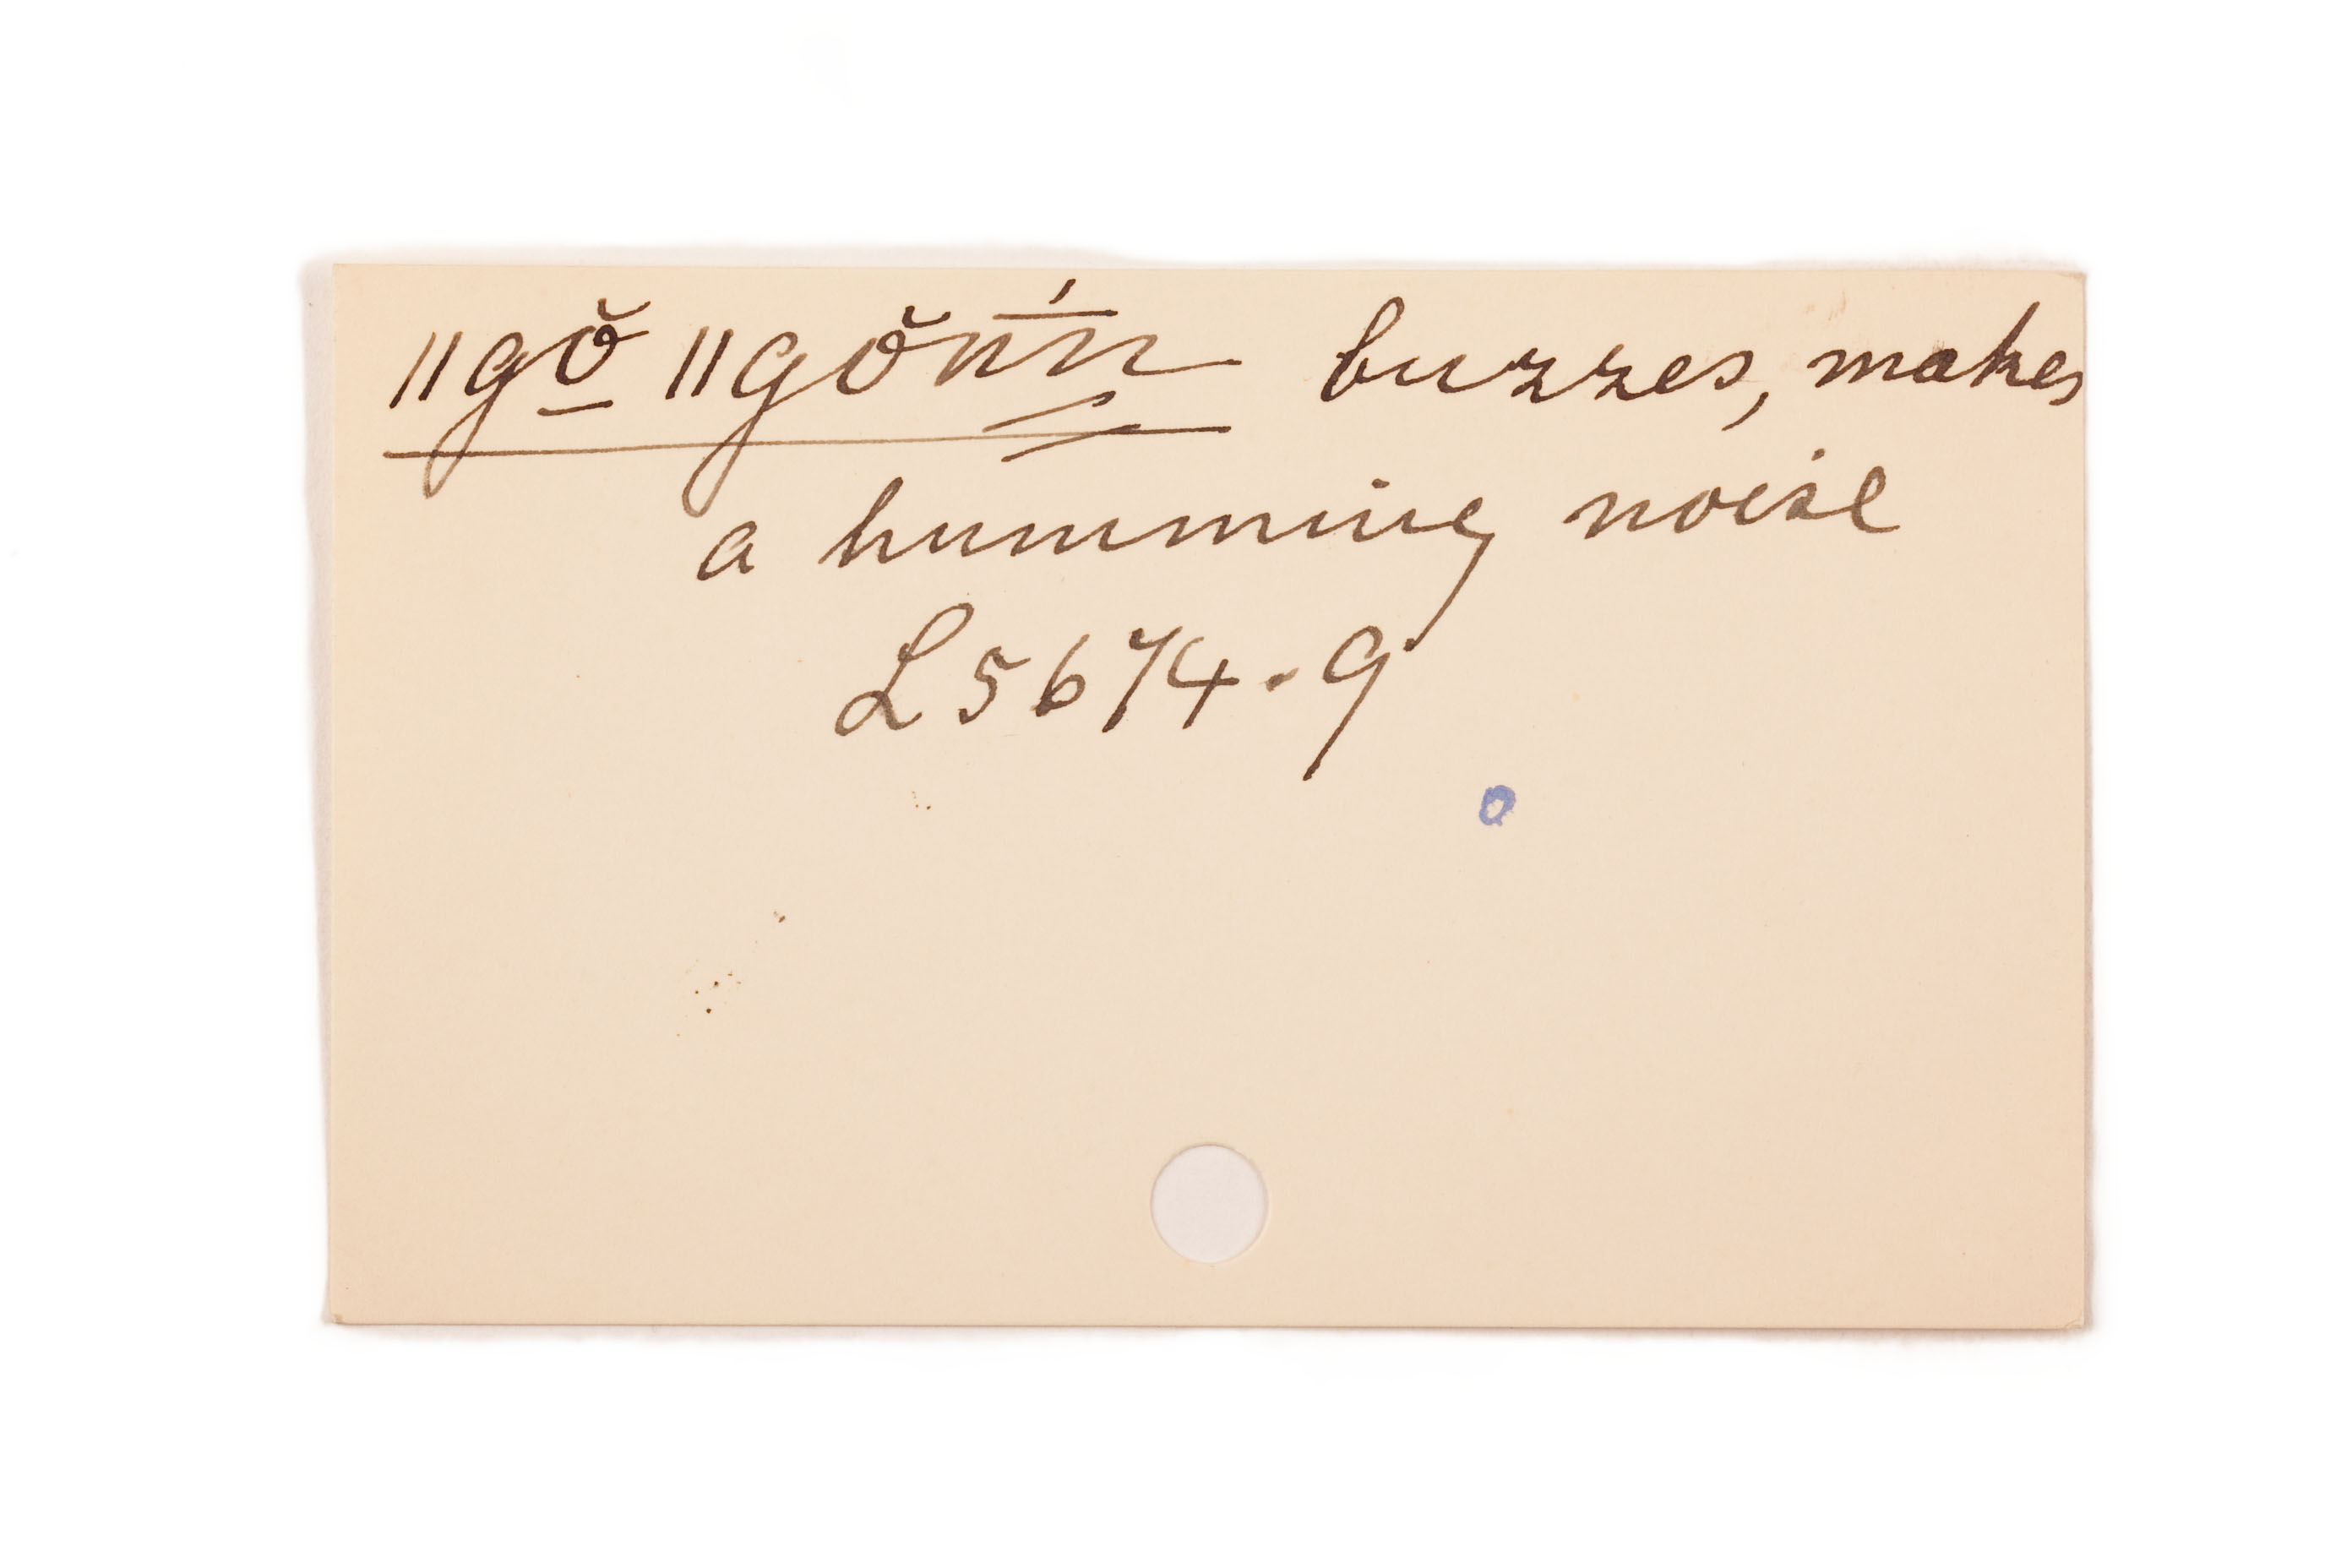 ǁgŏ̠ ǁgŏn̄́n̳ buzzes, makes
a humming noise
L5674.9